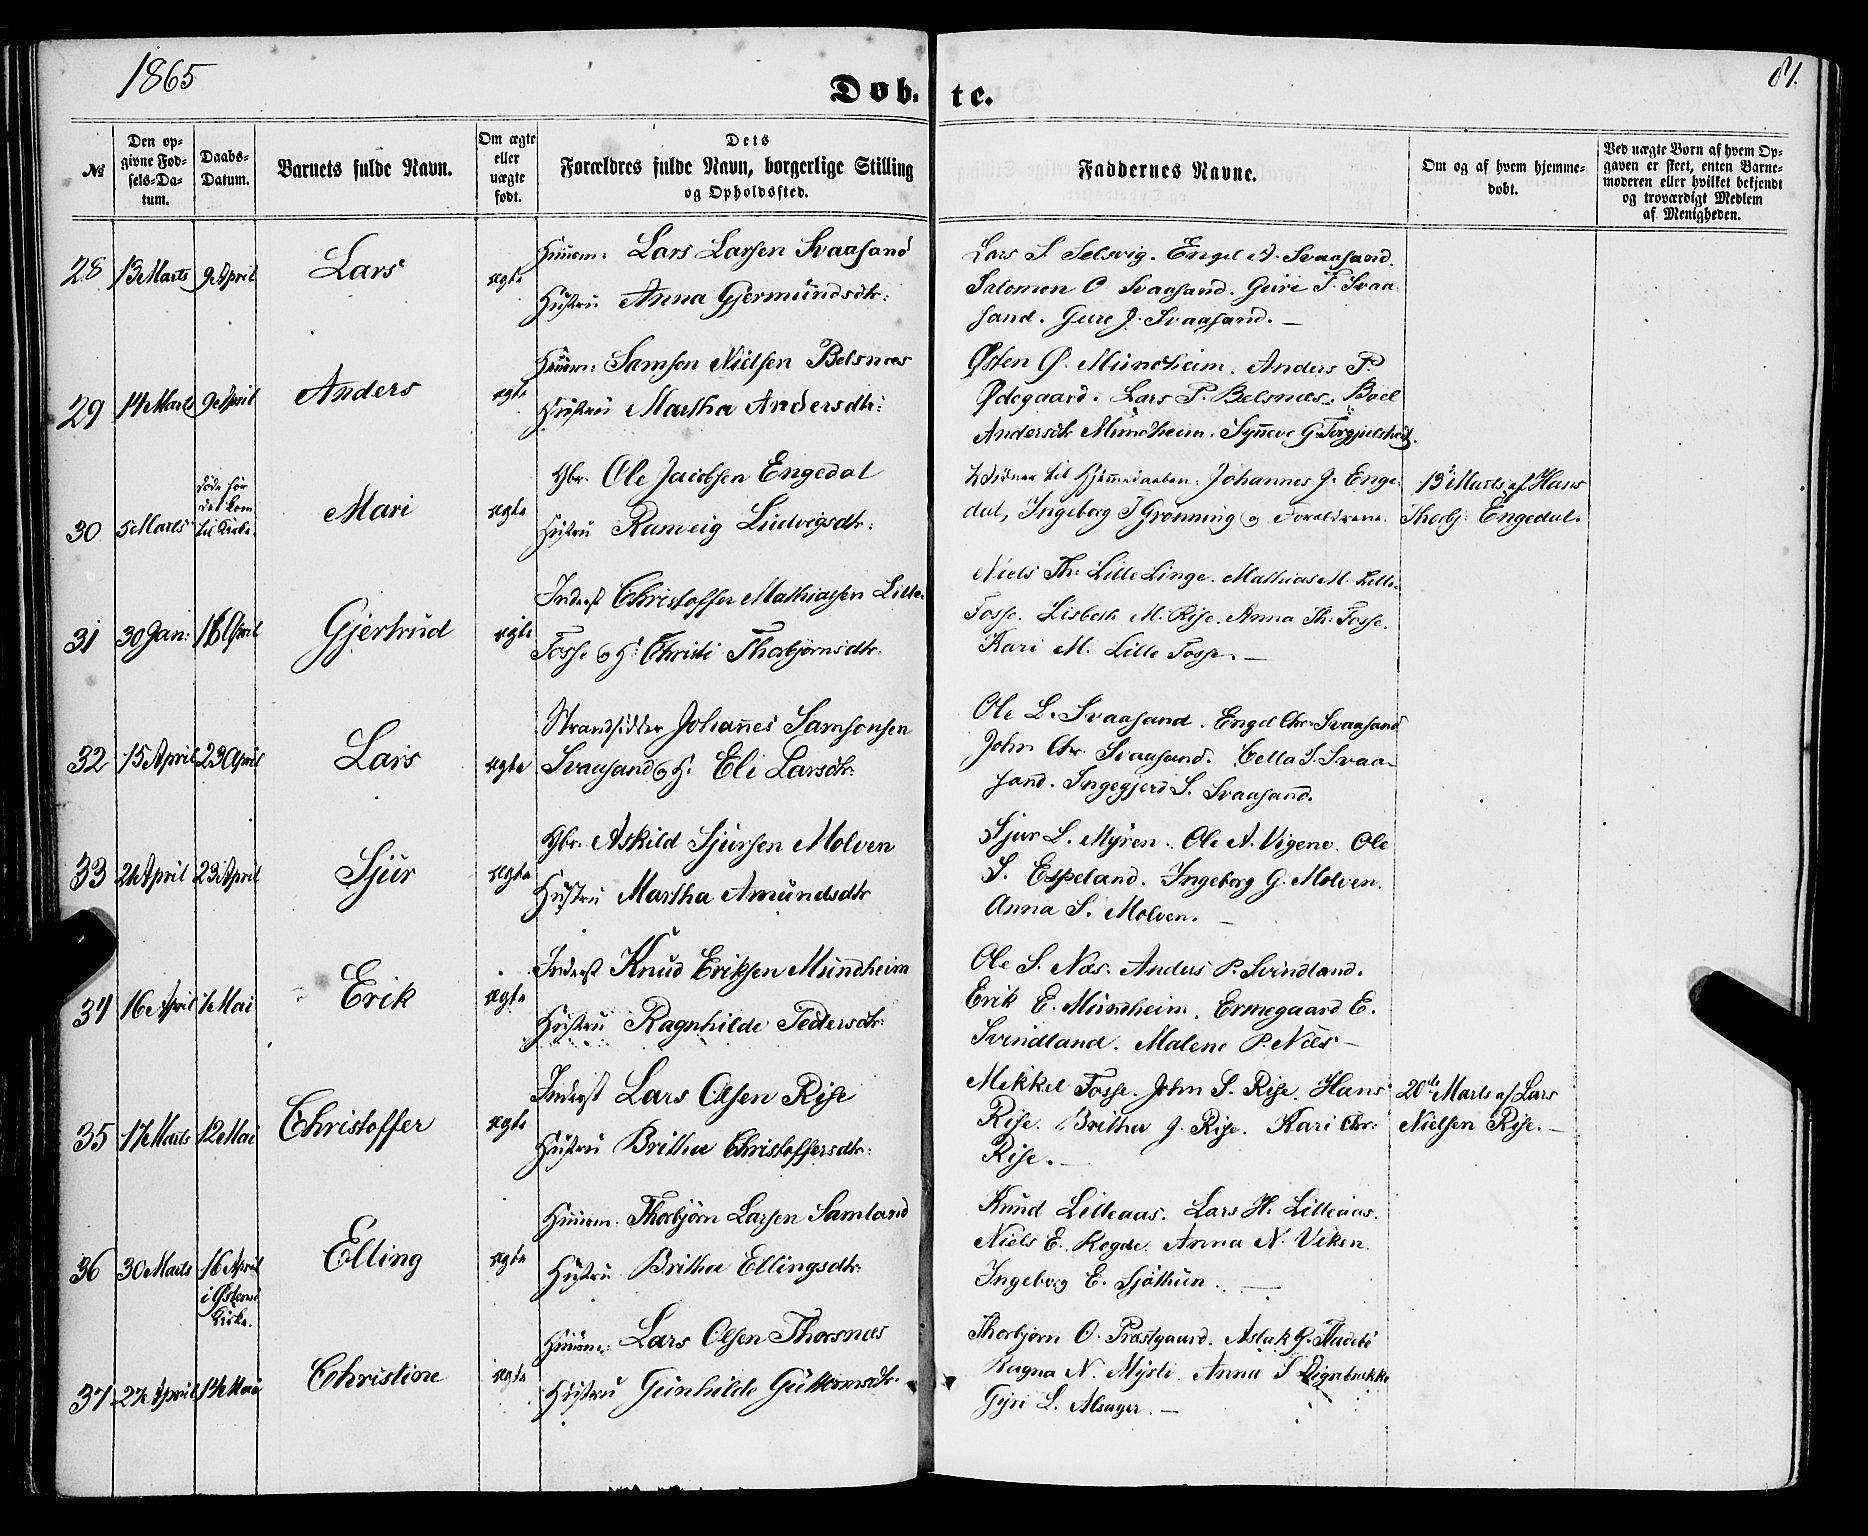 1865
81.
Døb- te.
No
Den opgivne Fødsels-Datum.
Daabs-Datum.
Barnets fulde Navn.
Om ægte eller uægte født.
Dets Forældres fulde Navn, borgerlige Stilling og Opholdssted.
Faddernes Navne.
Om og af hvem hjemmedøbt.
Ved uægte Børn af hvem Opgaven er skeet, enten Barnemoderen eller hvilket bekjendt og troværdigt Medlem af Menigheden.
28 13 Marts 9 April Lars ægte
Huusm: Lars Larsen Svaasand
Hustru Anna Gjermundsdtr:
Lars S. Selsvig. Engel A. Svaasand.
Salomon O Svaasand. Guri T. Svaa
sand. Gure J. Svaasand. —
29 14 Marts 9 April Anders ægte
Huusm: Samson Nielsen Belsnæs
Hustru Martha Andersdtr:
Østen Ø. Mundheim. Anders P.
Ødegaard. Lars P. Belsnæs. Boel
Andersdtr Mundheim. Synneve G.
30 5 Marts døde før det kom til Kirke. Mari ægte
Gbr. Ole Jacobsen Engedal
Hustru Ranveig Ludvigsdtr:
Vidner til Hjemmedaaben. Johannes J. Enge-
dal, Ingeborg J Grønning og Forældrene.
13 Marts af Hans
Thorbj: Engedal.
31 30 Jan: 16 April Gjertrud ægte
Inderst Christoffer Mathiasen Lille
Fosse og H: Christi Thorbjørnsdtr.
Niels Th: Lille Linge. Mathias M. Lille-
Fosse. Lisbeth M. Rise. Anna Th. Fosse.
Kari M. Lille Fosse. —
32 15 April 23 April Lars ægte
Strandsidder Johannes Samsonsen
Svaasand og H. Eli Larsdtr.
Ole L. Svaasand. Engel Chr. Svaasand
John Chr. Svaasand. Cella S. Svaa-
sand. Ingegjerd S. Svaasand.
33 2 April 23 April Sjur ægte
Gbr. Askild Sjursen Molven
Hustru Martha Amundsdtr
Sjur L. Myren. Ole A. Vigene. Ole
S. Espeland. Ingeborg G. Molven.
Anna S. Molven. —
34 16 April 7 Mai Erik ægte
Inderst Knud Eriksen Mundheim
Hustru Ragnhilde Pedersdtr:
Ole S. Næs. Anders P. Svindland.
Erik E. Mundheim. Ermegaard E.
Svindland. Malene P. Næs —
35 17 Marts 12 Mai Christoffer ægte
Inderst Lars Olsen Rise
Hustru Britha Christoffersdtr:
Mikkel Fosse. John S. Rise. Hans
Rise. Britha J. Rise. Kari Chr:
Rise. —
20de Marts af Lars
Nielsen Rise. —
36 30 Marts 16 April i Østensø Kirke. Elling ægte
Huusm. Thorbjørn Larsen Samland
Hustru Britha Ellingsdtr.
Knud Lilleaas. Lars H. Lilleaas.
Niels E. Rogde. Anna N. Viken.
Ingeborg E. Sjøthun. —
37 2 April 17 Mai Christine ægte
Huusm: Lars Olsen Thorsnæs
Hustru Gunhilde Guttormsdtr.
Thorbjørn O. Præstgaard. Aslak G.
Ragna N. Myrli. Anna S
Gyri L. Alsager. —